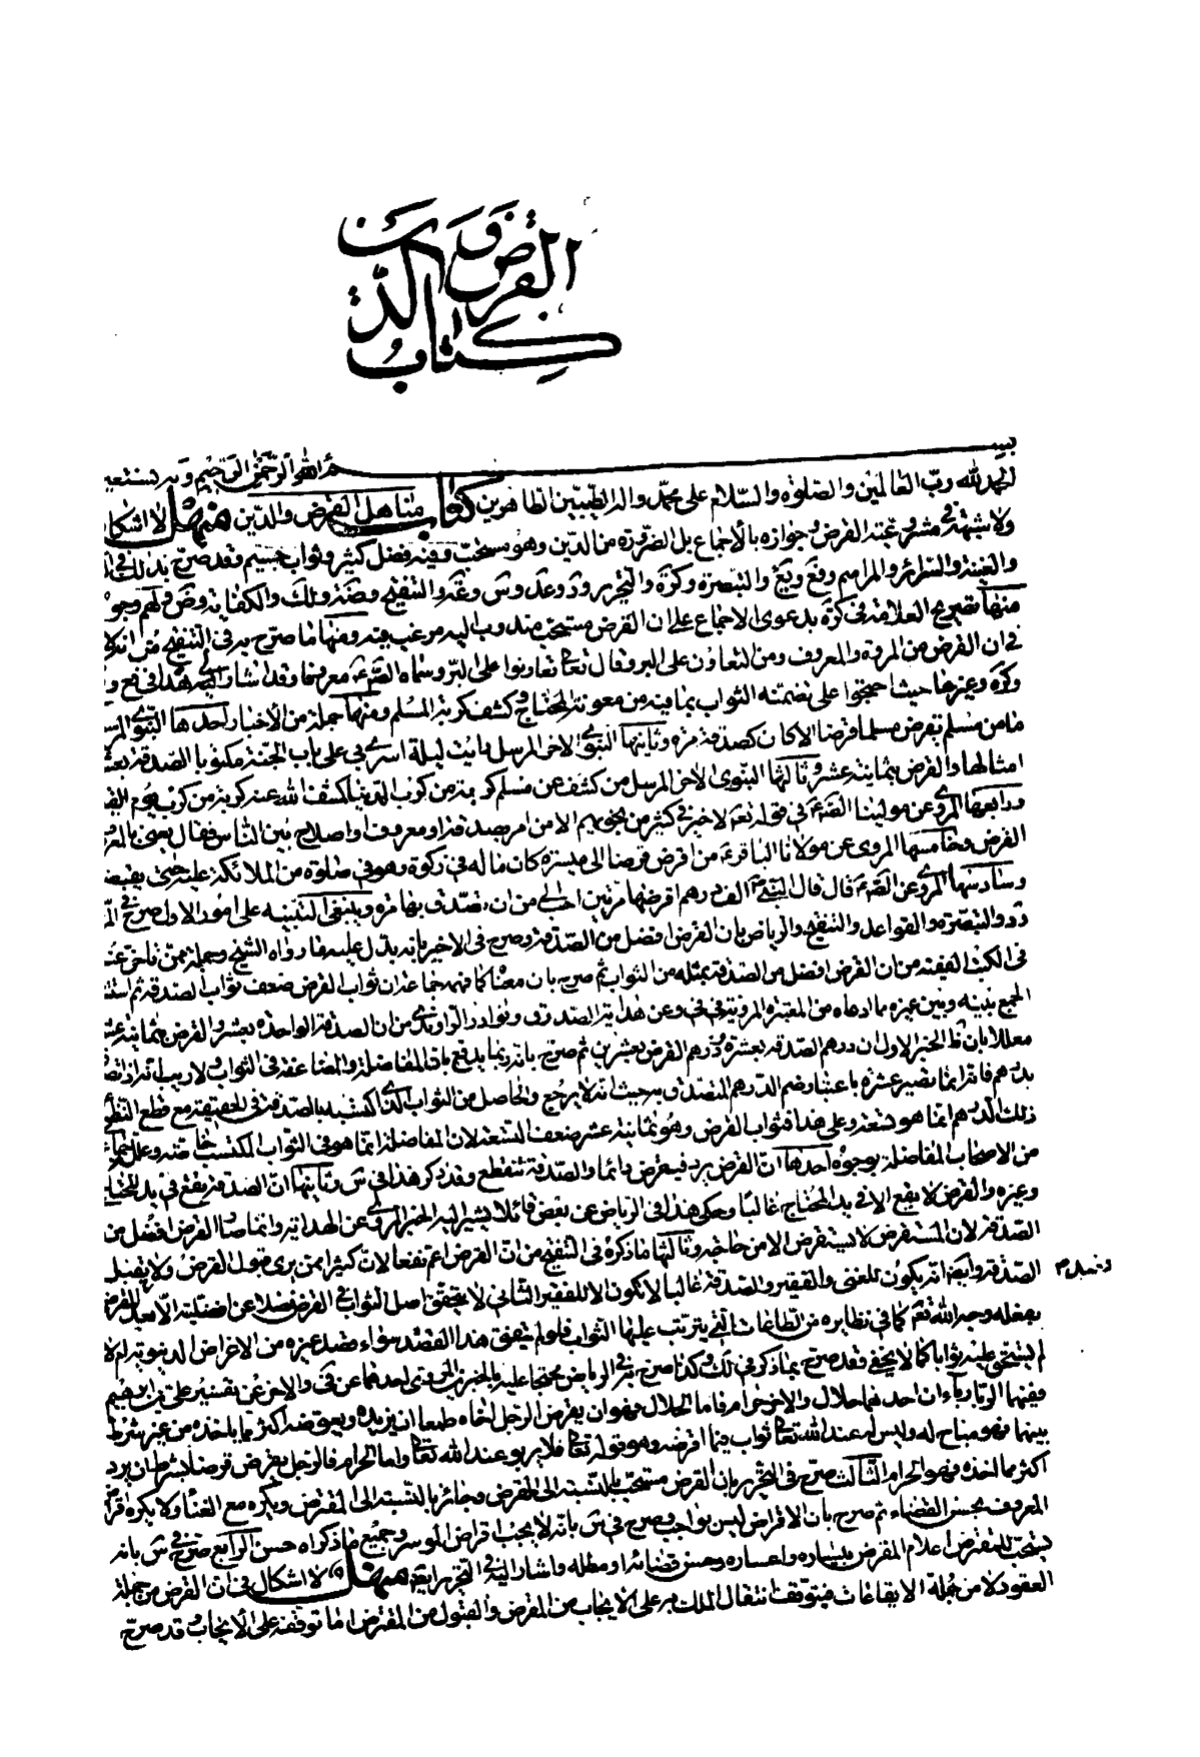 كتاب القرض والدين
بسم الله الرحمن الرحيم وبه نستعين
الحمد لله رب العالمين والصلوة والسلام على محمد واله الطيبين الطاهرين كتاب مناهل القرض والدين منهل لا اشكال
ولا شبهة في مشروعية القرض وجوازه بالاجماع بل الضرورة من الدين وهو مستحب وفيه فضل كثير وثواب جسيم وقد صرح بذلك في
والغنية والسرائر والمراسم وفع ويع والتبصرة وكرة والتحرير ود وعد وس والتنقيح وضة ولك والكفاية وض ولهم وجوه
منها تصريح العلامة في كرة بدعوى الاجماع على ان القرض مستحب مندوب اليه مرغب فيه ومنها ما صرح به في التنقيح من انه لا
في ان القرض من المروة والمعروف ومن التعاون على البر وقال تعالى تعاونوا على البر وسماه الصم معروفا وقد اشار الى هذا في فع و
وكره وغيرها حيث احتجوا على تضمنه الثواب بما فيه من معونة المحتاج وكشف كربة المسلم ومنها جملة من الأخبار احدها النبوي المرسل
ما من مسلم يقرض مسلما قرضا الا كان كصدقة مرة وثانيها النبوي الاخر المرسل رايت ليلة اسري بي على باب الجنة مكتوبا الصدقة بعشر
امثالها والقرض بثمانية عشر وثالثها النبوي الاخر المرسل من كشف عن مسلم كربة من كرب الدنيا كشف الله عنه كربة من كرب يوم القيمة
ورابعها المروي عن مولينا الصم في قوله تعم لا خير في كثير من نجويهم الا من امر بصدقة او معروف او اصلاح بين الناس فقال يعني بالمعروف
القرض وخامسها المروي عن مولانا الباقر م من اقرض قرضا الى ميسرة كان ماله في زكوة وهو في صلوة من الملائكة عليه حتى يقبضه
وسادسها المروي عن الصم قال قال النبي ص الف درهم اقرضها مرتين احب الي من ان اتصدق بها مرة وينبغي التنبيه على امور الاول صرح في
ود والتبصرة والقواعد والتنقيح والرياض بان القرض افضل من الصدقة وصرح في الاخير بانه يدل عليه ما رواه الشيخ وجملة ممن تاخر عنه
في الكتب الفقهية من ان القرض افضل من الصدقة بمثله من الثواب ثم صرح بان معناه كما فهمه جماعة ان ثواب القرض ضعف ثواب الصدقة ثم استشكل
الجمع بينه وبين غيره مما ادعاه من المعتبرة المروية في في وعن هداية الصدوق ونوادر الراوندي من ان الصدقة الواحدة بعشر والقرض بثمانية عشر
معللا بان ظ الخبر الاول ان درهم الصدقة بعشرة ودرهم القرض بعشرين ثم صرح بانه ربما يدفع بان المفاضلة والمضاعفة في الثواب ولا ريب انه اذا تصدق
بدرهم فانه انما يصير عشرة باعتبار ضم الدرهم المتصدق به حيث انه لا يرجع والحاصل من الثواب الذي اكتسبه بالصدقة في الحقيقة مع قطع النظر
ذلك الدرهم انما هو تسعة وعلى هذا فثواب القرض وهو ثمانية عشر ضعف التسعة لان المفاضلة انما هو في الثواب المكتسب خاصة وعلل جماعة
من الاصحاب المفاضلة بوجوه احدها ان القرض يرد فيقرض دائما والصدقة تنقطع وقد ذكر هذا في س وثانيها ان الصدقة تقع في يد المحتاج
وغيره والقرض لا يقع الا في يد المحتاج غالبا وحكى هذا في الرياض عن بعض قائلا يشير اليه الخبر المروي عن الهداية وانما صار القرض افضل من
الصدقة لان المستقرض لا يستقرض الا من حاجة وثالثها ما ذكره في التنقيح من ان القرض اعم نفعا لان كثيرا ممن يرى قبول القرض ولا يقبل
الصدقة وايضا انه يكون للغني والفقير والصدقة غالبا لا تكون الا للفقير الثاني لا يتحقق اصل الثواب في القرض فضلا عن افضليته الا بعد
بفعله وجه الله تعم كما في نظايره من الطاعات التي يترتب عليها الثواب فلو لم يتفق هذا القصد سواء قصد غيره من الاغراض الدنيوية ام لا
لم يستحق عليه ثوابا كما لا يخفى وقد صرح بما ذكر في لك وكذا صرح به في الرياض محتجا عليه بالخبرين المروي احدهما عن في والاخر عن تفسير علي بن ابرهيم
ففيهما الربا رباءان احدهما حلال والاخر حرام فاما الحلال فهو ان يقرض الرجل اخاه طمعا ان يزيده ويعوضه اكثر مما ياخذه من غير شرط
بينهما فهو مباح له وليس له عند الله تعالى ثواب فيما اقرضه وهو قوله تعالى فلا يربو عند الله تعالى واما الحرام فالرجل يقرض قرضا بشرط ان يرد
اكثر مما اخذه وهو الحرام الثالث صرح في التحرير بان القرض مستحب بالنسبة الى المقرض وجائز بالنسبة الى المقترض ويكره مع الغناء ولا يكره اقراض
المعروف بحسن القضاء ثم صرح بان الاقراض ليس بواجب وصرح في س بانه لا يجب اقراض الموسر وجميع ما ذكراه حسن الرابع صرح في س بانه
يستحب للمقترض اعلام المقرض بيساره واعساره وحسن قضائه او مطله واشار اليه في التحرير ايضا منهل لا اشكال في ان القرض من جملة
العقود لا من جملة الايقاعات فيتوقف انتقال الملك به على الايجاب من المقرض والقبول من المقترض اما توقفه على الايجاب فقد صرح